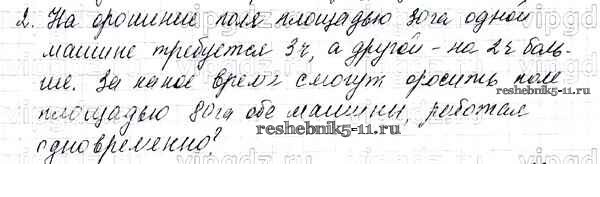 2. На орошение поля площадью 30га одной
машине требуется 3ч, а другой - на 2ч боль-
ше. За какое время смогут оросить поле
площадью 80га обе машины, работая
reshebnik5-11.ru
одновременно?